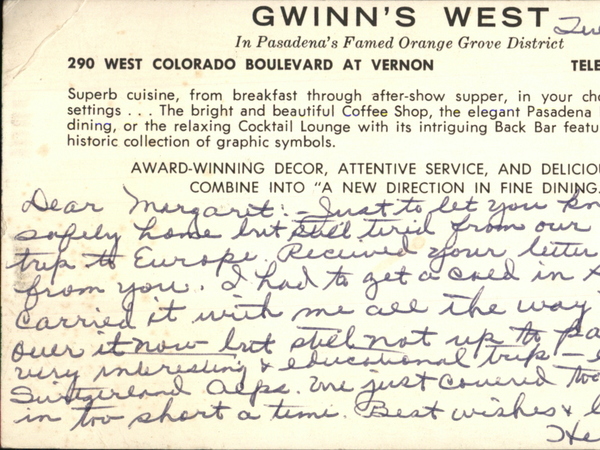 GWINN'S WEST
In Pasadena's Famed Orange Grove District
290 WEST COLORADO BOULEVARD AT VERNON TELE
Superb cuisine, from breakfast through after-show supper, in your cho
settings . . . The bright and beautiful Coffee Shop, the elegant Pasadena
dining, or the relaxing Cocktail Lounge with its intriguing Back Bar featu
historic collection of graphic symbols.
AWARD-WINNING DECOR, ATTENTIVE SERVICE, AND DELICIOU
COMBINE INTO "A NEW DIRECTION IN FINE DINING.
Dear Margaret:- Just to let you kn
safely home but still tired from our
trip to Europe. Received your letter
from you. I had to get a cold in
carried it with me all the way
over it now but still not up to pa
very interesting & educational trip -
Switzerland Alps. We just covered too
in too short a time. Best wishes & l
He